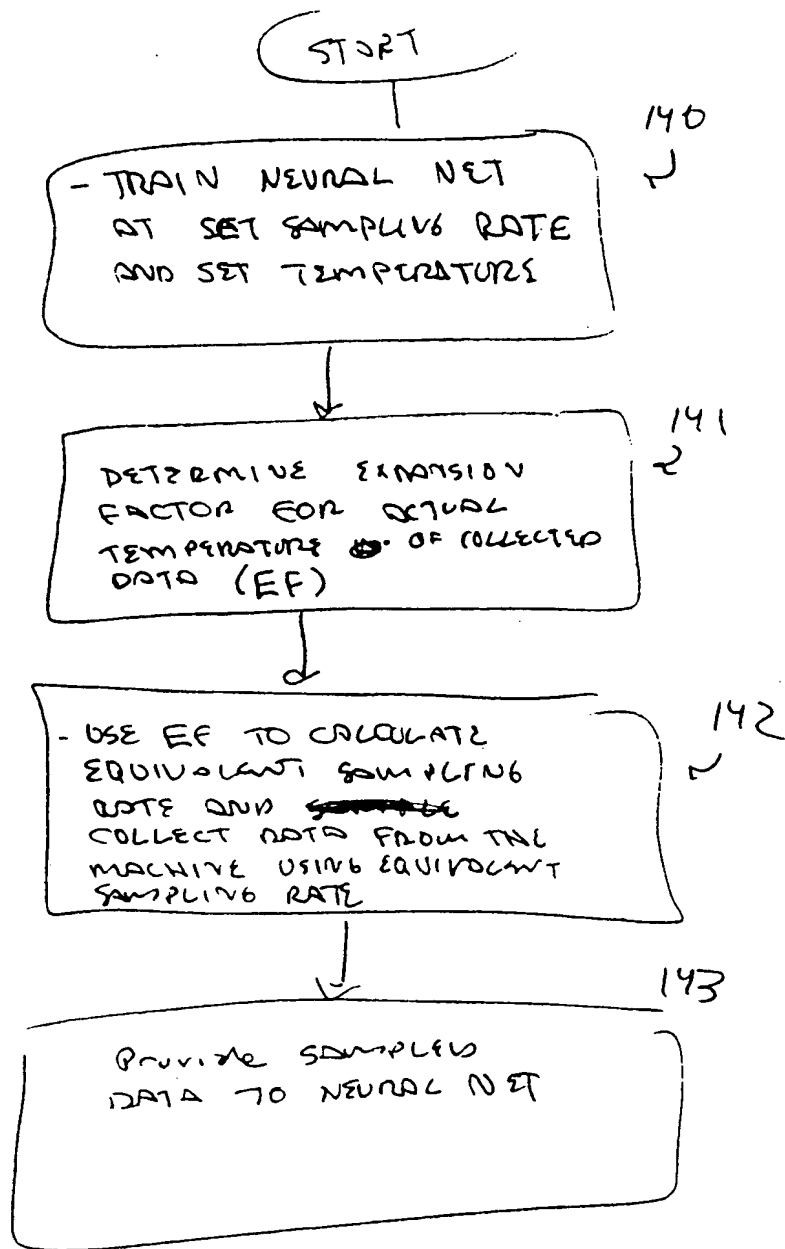 START
140
- TRAIN NEURAL NET
AT SET SAMPLING RATE
AND SET TEMPERATURE
141
DETERMINE EXPANSION
FACTOR FOR ACTUAL
TEMPERATURE OF COLLECTED
DATA (EF)
142
- USE EF TO CALCULATE
EQUIVALENT SAMPLING
RATE AND
COLLECT DATA FROM THE
MACHINE USING EQUIVALENT
SAMPLING RATE
143
Provide SAMPLED
DATA TO NEURAL NET